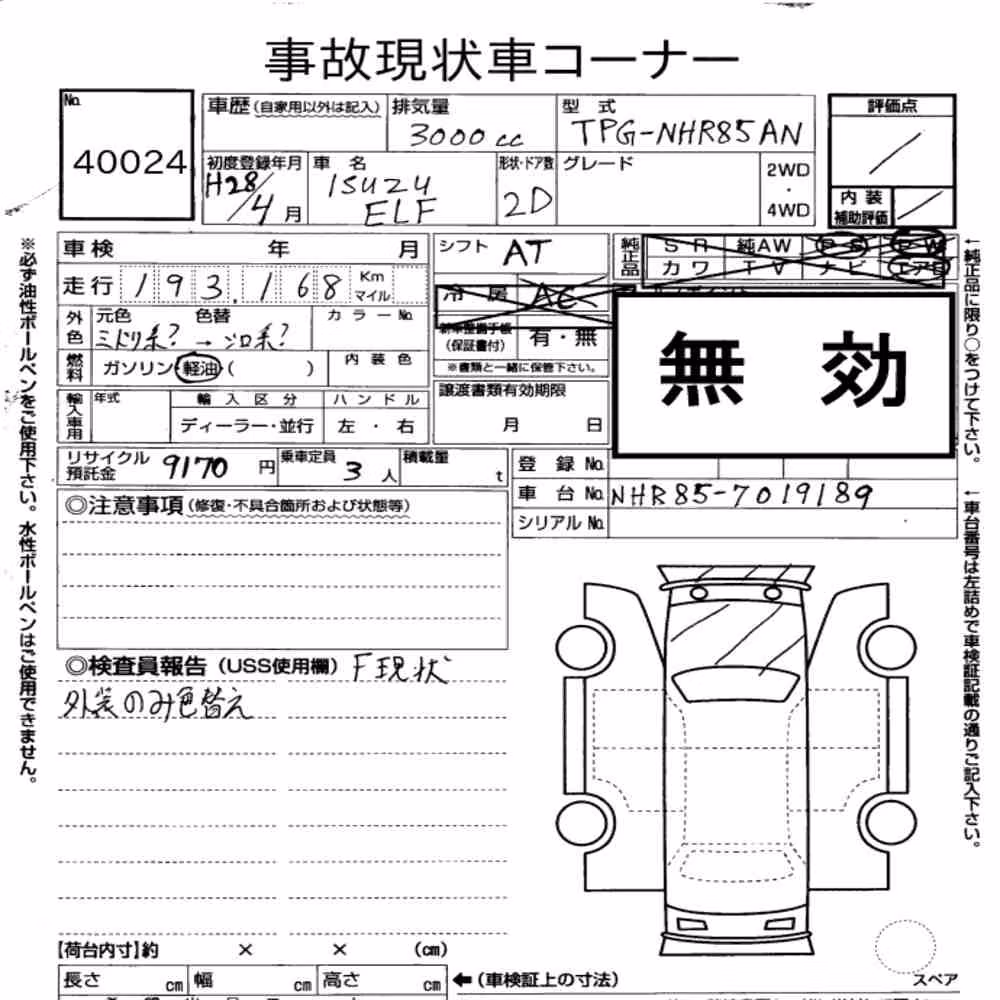 事故現状車コーナー
No.
40024
車歴(自家用以外は記入)
排気量
3000cc
型式
TPG-NHR85AN
評価点
初度登録年月
H28/4月
車名
ISUZU
ELF
形状・ドア数
2D
グレード
2WD
・
4WD
内装
補助評価
車検 年 月
シフト AT
純正品
SR 純AW PS PW
カワ TV ナビ エアB
走行 193,168 Km
マイル
冷房 AC
外色
元色 色替 カラーNo.
ミドリ系? → シロ系?
新車整備手帳
(保証書付)
有・無
※書類と一緒に保管下さい。
無効
燃料
ガソリン・軽油( )
内装色
輸入車用
年式
輸入区分
ハンドル
ディーラー・並行
左・右
譲渡書類有効期限
月 日
リサイクル
預託金
9170円
乗車定員 3人
積載量 t
登録No.
車台No. NHR85-7019189
シリアルNo.
◎注意事項(修復・不具合箇所および状態等)
◎検査員報告(USS使用欄) F現状
外装のみ色替え
【荷台内寸】約 × × (cm)
長さ cm 幅 cm 高さ cm
←(車検証上の寸法)
スペア
※必ず油性ボールペンをご使用下さい。水性ボールペンはご使用できません。
←純正品に限り○をつけて下さい。
←車台番号は左詰めで車検証記載の通りご記入下さい。